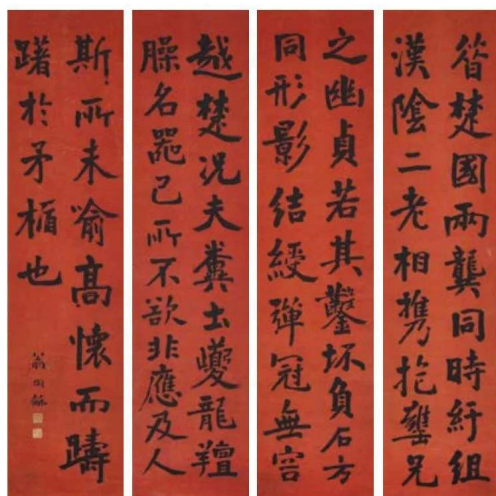 昔楚國兩龔同時紆組
漢陰二老相携抱甕兄
之幽貞若其鑿坏負石方
同形影結綬彈冠無容
越楚況夫糞土夔龍羶
臊名器已所不欲非應及人
斯所未喻高懷而躊
躇於矛楯也
翁同龢